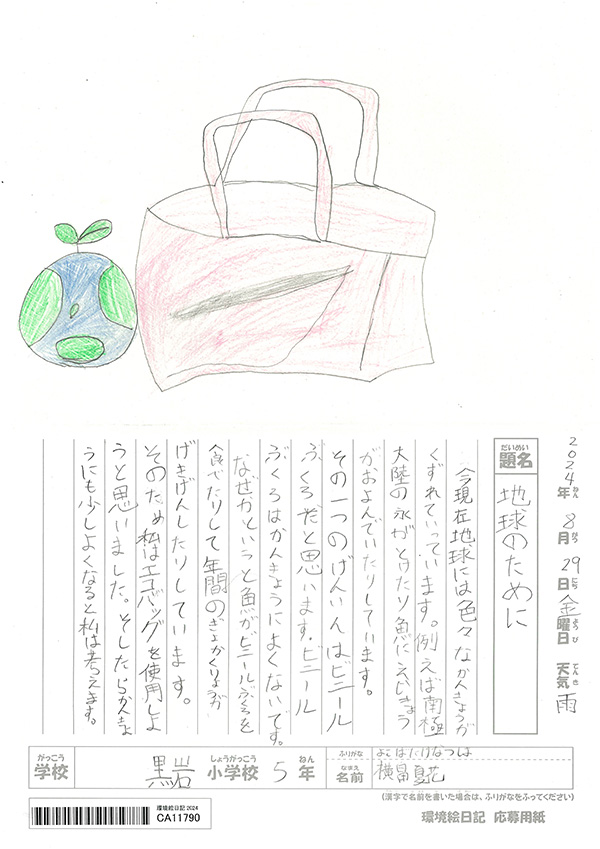 2024年 8月 29日 金曜日 天気 雨
ねん がつ にち ようび てんき
だいめい
題名
地球のために
今現在地球には色々なかんきょうが
くずれていっています。例えば南極
大陸の氷がとけたり魚にえいきょう
がおよんでいたりしています。
その一つのげんいんはビニール
ぶくろだと思います。ビニール
ぶくろはかんきょうによくないです。
なぜかというと魚がビニールぶくろを
食べたりして年間のぎょかくりょうが
げきげんしたりしています。
そのため私はエコバッグを使用しよ
うと思いました。そしたらかんきょ
うにも少しよくなると私は考えます。
がっこう
学校
黒岩
しょうがっこう
小学校
5
ねん
年
ふりがな
よこはたけなつは
なまえ
名前
横畠夏花
(漢字で名前を書いた場合は、ふりがなをふってください)
環境絵日記2024
CA11790
環境絵日記 応募用紙